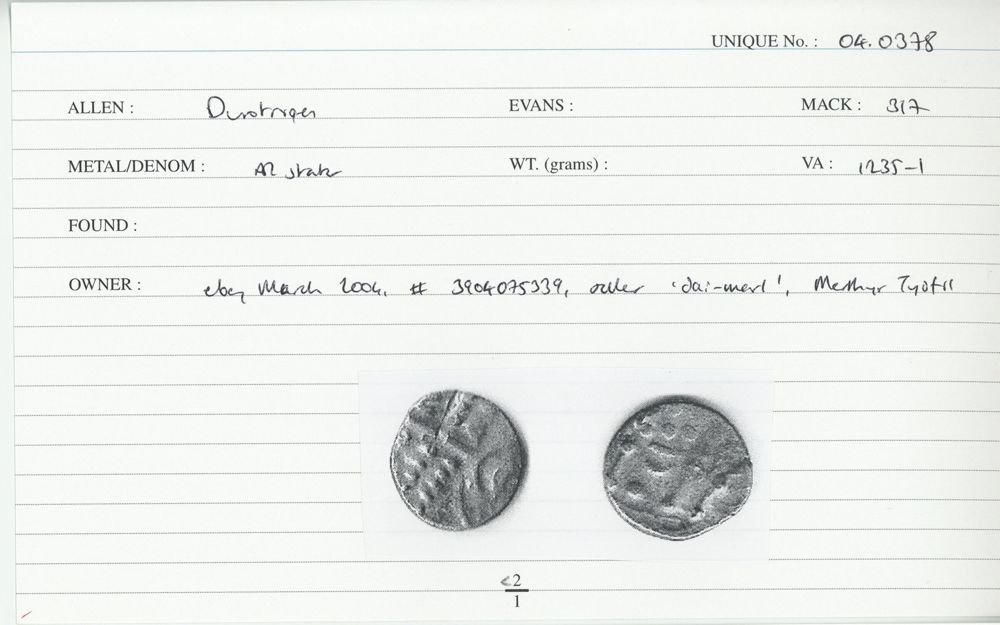 UNIQUE No. : 04.0378
ALLEN : Durotriges EVANS : MACK : 317
METAL/DENOM : AR stater WT. (grams) : VA : 1235-1
FOUND :
OWNER : ebay March 2004, # 3904075339, seller 'dai-merl', Merthyr Tydfil
<2
1